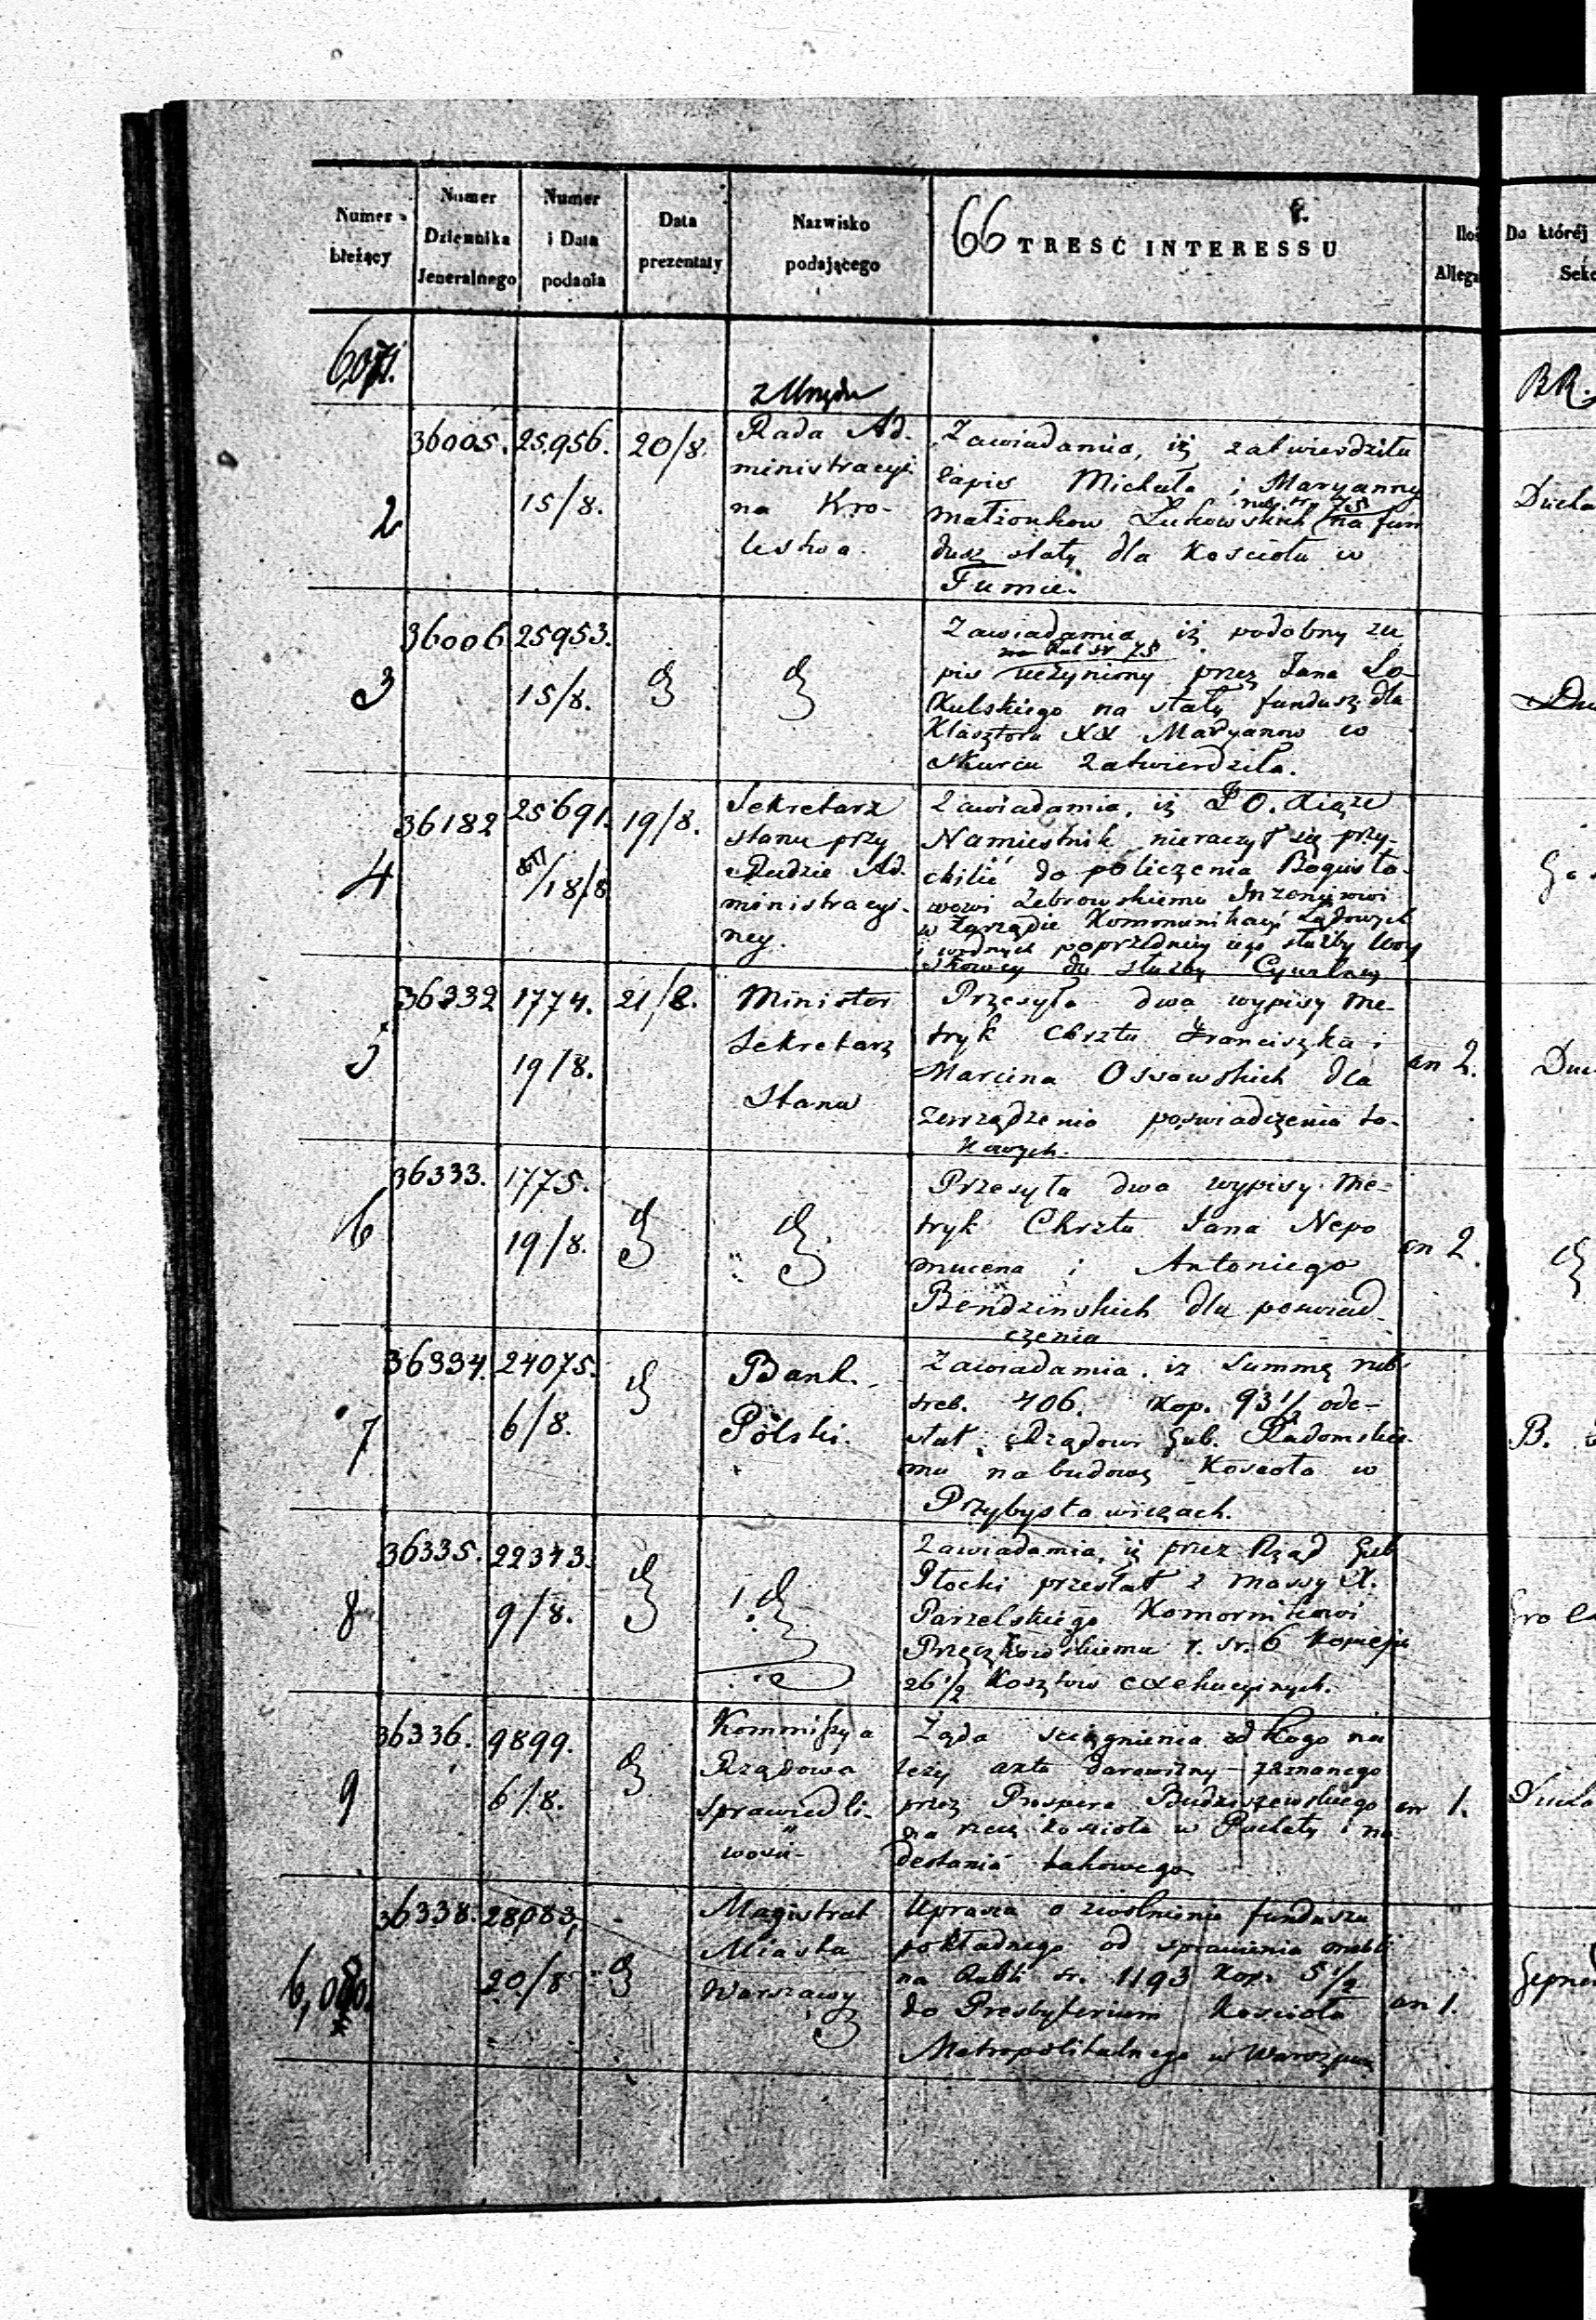 Numer
bieżący
Numer
Dziennika
Jeneralnego
Numer
i Data
podania
Data
prezentaty
Nazwisko
podającego
66 TRESĆ INTERESSU
Iloś
Allega
Do któréj
Sekc
6,071.
z Urzędu
BR.
2
36005.
25,956.
15/8.
20/8.
Rada Ad-
ministracyi
na Kro-
lestwa.
Zawiadamia, iż zatwierdziła
zapis Michała i Maryanny
rub. sr. 75
małżonkow Łukowskich na fun
dusz stały dla Kościoła w
Tumie.
Ducho
3
36006
25953.
15/8.
Zawiadamia, iż podobny za
na Rub sr 75
pis uczyniony przez Jana So-
kulskiego na stały fundusz dla
Klasztoru XX Maryanow w
Skurcu zatwierdziła.
4
36182
25691.
18/8
19/8.
Sekretarz
stanu przy
Radzie Ad-
ministracyi-
ney.
Zawiadamia, iż J O. Xiąże
Namiestnik nieraczył się przy-
chilić do policzenia Bogusła-
wowi Żebrowskiemu Inżenierowi
w Zarządie Kommunikacyi Lądowych
i wodnych poprzedniey iego służby Woy
skowey do służby Cywilney
5
36332
1774.
19/8.
21/8.
Minister
Sekretarz
Stanu
Przesyła dwa wypisy me-
tryk Chrztu Franciszka i
Marcina Ossowskich dla
zarządzenia poświadczenia ta-
kowych.
an 2.
Duc
6
36333.
1775.
19/8.
Przesyła dwa wypisy me-
tryk Chrztu Jana Nepo
mucena i Antoniego
Bendzinskich dla poswiad-
czenia
an 2.
7
36334.
24075.
6/8.
Bank
Polski.
Zawiadamia, iż Summę rub
sreb. 406. kop. 93 1/2 ode-
słał Rządowi Gub. Radomskie-
mu na budowę Koscioła w
Przybysławicach.
B.
8
36335.
22343.
9/8.
Zawiadamia, iż przez Rząd Gub
Płocki przesłał z massy X.
Parzelskiego Komornikowi
Przączkowskiemu r. sr. 6 Kopiejek
26 1/2 Kosztów exekucyinych.
9
36336.
9899.
6/8.
Kommissya
Rządowa
Sprawiedli-
wości
Żąda sciągnienia od kogo na
leży aktu darowizny zeznanego
przez Prospera Budziszewskiego
na rzecz kościoła w Puchały i na
desłania takowego
an 1.
Ducho
6,080.
36338.
28,083,
20/8
Magistrat
Miasta
Warszawy
Uprasza o zwolnienie funduszu
pokładnego od sprawienia mebli
na Rubli sr. 1193 Kop. 5 1/2
do Presbyterium Kościoła
Metropolitalnego w Warszawie
an 1.